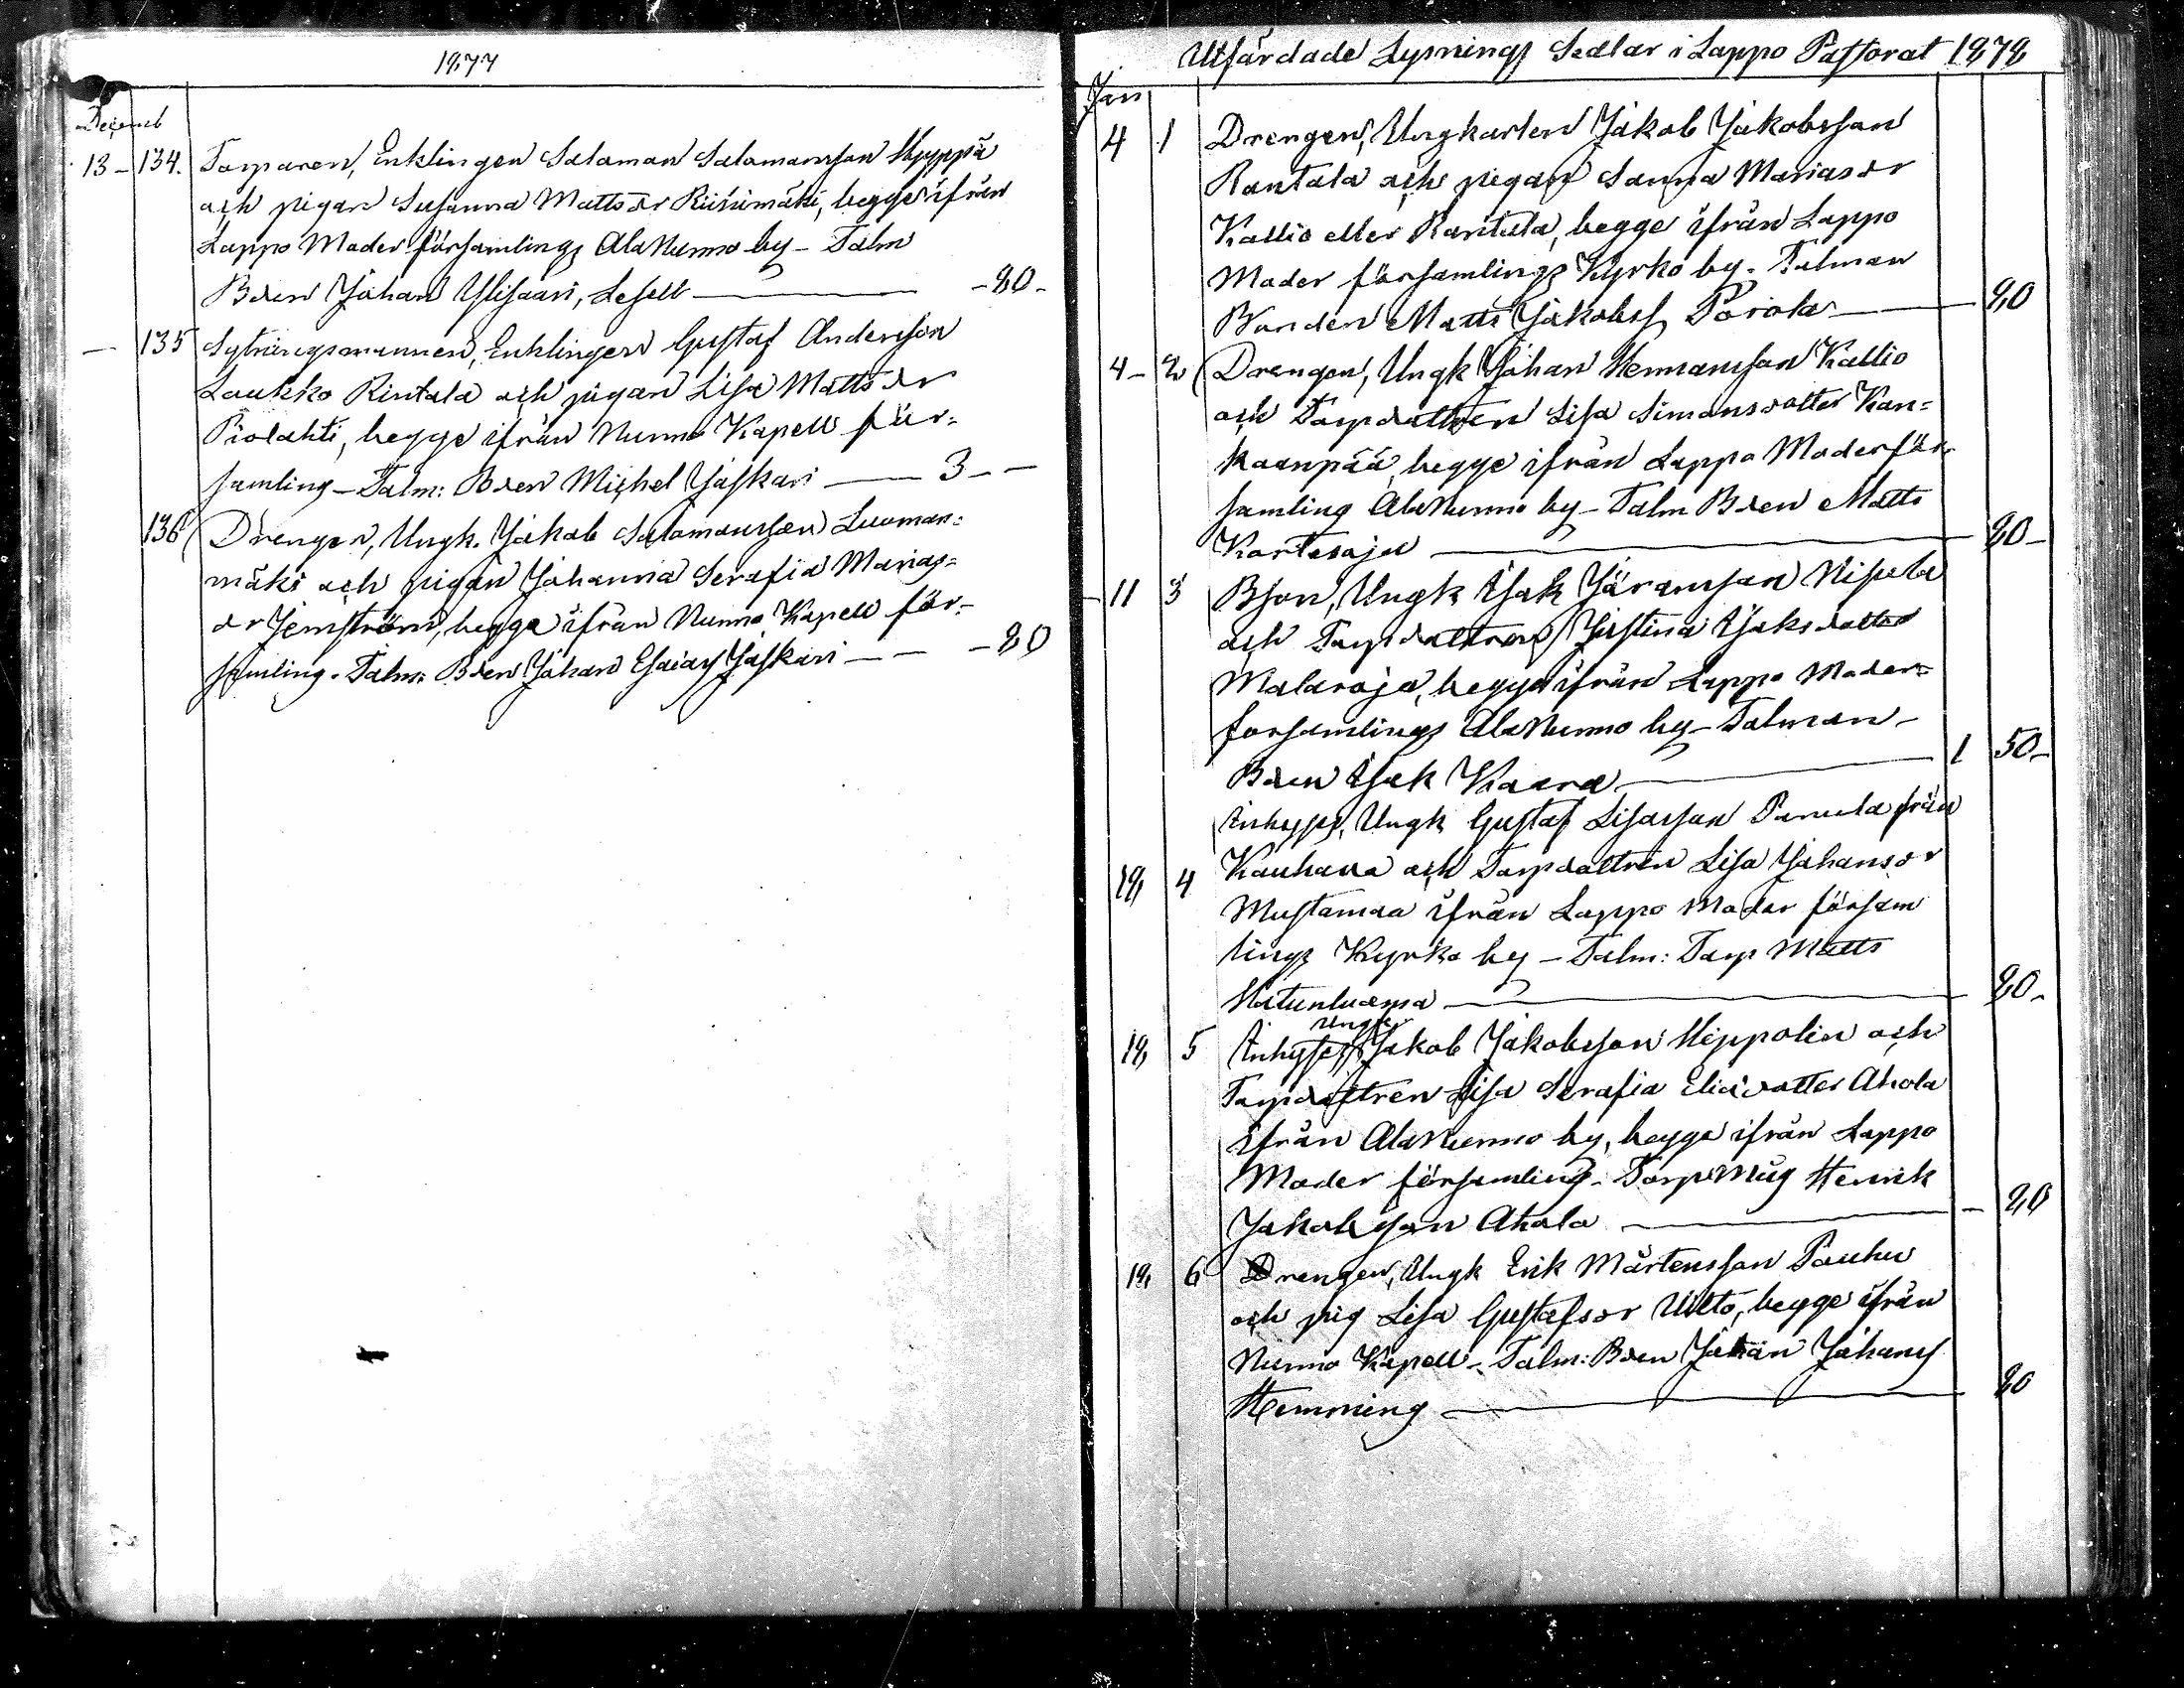 1877
Decemb
13 - 134. Torparen, Enklingen Salamon Salamonsson Hyyppä
och pigan Susanna Mattsdr Riihimäki, begge ifrån
Lappo Moder församlings AlaNurmo by - Talm
Bden Johan Ylisaari, Lesell - 80 -
— 135 Sytningsmannen, Enklingen Gustaf Andersson
Laukko Rintala och pigan Lisa Mattsdr
Piolahti, begge ifrån Nurmo Kapell för=
samling - Talm: Bden Michel Jaskari — 3 - —
136 Drengen, Ungk. Jakob Salamonsson Luoman=
mäki och pigan Johanna Serafia Marias=
dr Jernström, begge ifrån Nurmo Kapell för=
samling - Talm: Bden Johan Esaias Jaskari — — - 80
Utfärdade Lysnings Sedlar i Lappo Pastorat 1878
Jan
4 1 Drengen, Ungkarlen Jakob Jakobsson
Rantala och pigan Sanna Mariasdr
Kallio eller Rantala, begge ifrån Lappo
Moder församlings Kyrko by - Talman
Bonden Matts Jakobss Porola — 80
4 - 2 Drengen, Ungk Johan Hermansson Kallio
och Torpdottren Lisa Simonsdotter Kan=
kaanpää, begge ifrån Lappo Moderför=
samling AlaNurmo by - Talm Bden Matts
Kortesoja — 80 -
- 11 3 Bson, Ungk Isak Jöransson Nisula
och Torpdottren Justina Isaksdotter
Malaroja, begge ifrån Lappo Moder=
forsamlings AlaNurmo by - Talman -
Bden Isak Kaara — 1 50 -
Inhyses, Ungk Gustaf Lisasson Panula från
18 4 Kauhava och Torpdottren Lisa Johansdr
Mustamaa ifrån Lappo Moder försam
lings Kyrko by - Talm: Torp Matts
Hatunluoma — 80 -
Ungk
18 5 Inhyses Jakob Jakobsson Hippolin och
Torpdottren Lisa Serafia Eliædotter Ahola
ifrån AlaNurmo by, begge ifrån Lappo
Moder församling - Torp Måg Henrik
Jakobsson Ahola — - 80
18 6 Drengen, Ungk Erik Mårtensson Pouhu
och pig Lisa Gustafsdr Uitto, begge ifrån
Nurmo Kapell - Talm: Bden Johan Johanss
Hemming — 80